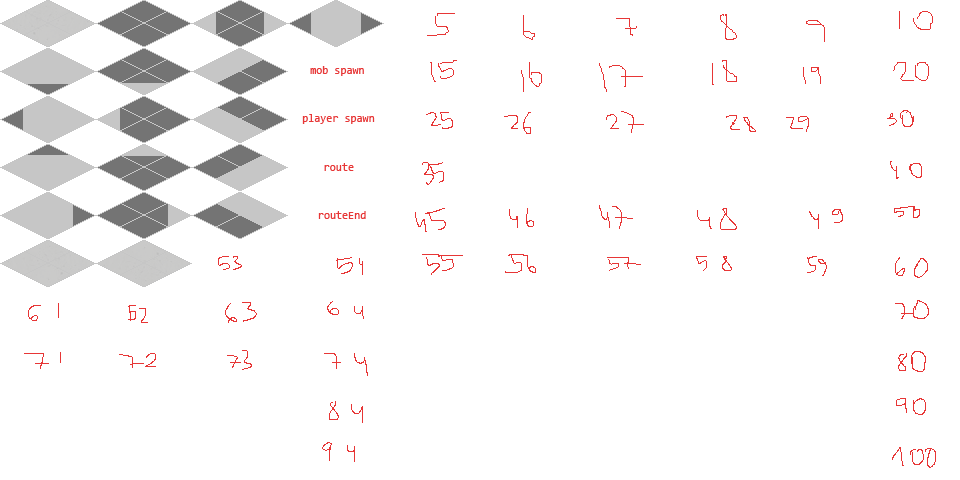 5 6 7 8 9 10
mob spawn 15 16 17 18 19 20
player spawn 25 26 27 28 29 30
route 35 40
routeEnd 45 46 47 48 49 50
53 54 55 56 57 58 59 60
61 62 63 64 70
71 72 73 74 80
84 90
94 100